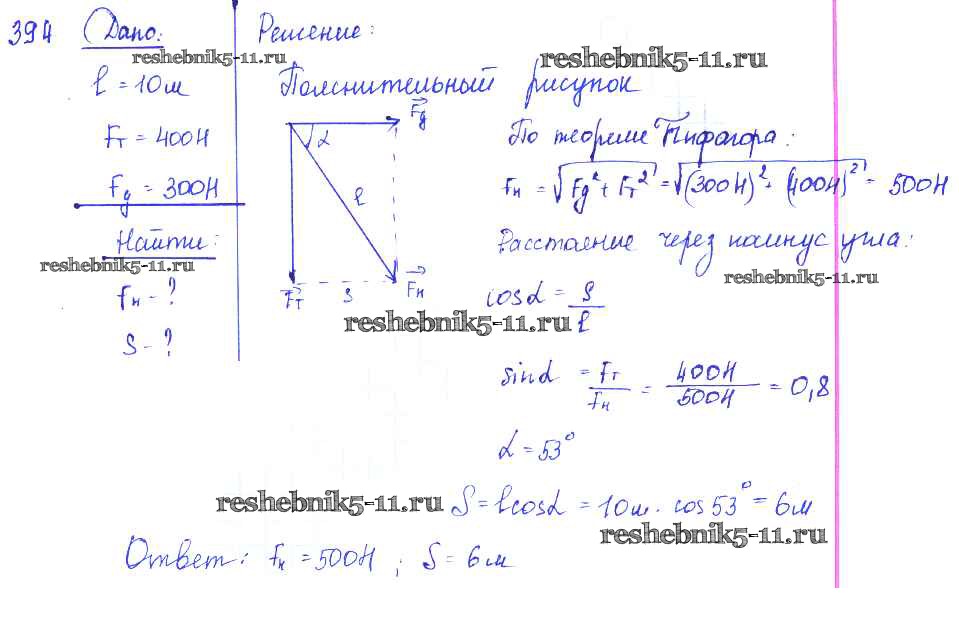 394 Дано:
reshebnik5-11.ru
l = 10м
Fт = 400Н
Fд = 300Н
Найти:
reshebnik5-11.ru
Fн - ?
S - ?
Решение:
reshebnik5-11.ru
Пояснительный рисунок
Fд
α
l
Fт
S
Fн
reshebnik5-11.ru
По теореме Пифагора:
Fн = √(Fд² + Fт²) = √((300Н)² + (400Н)²) = 500Н
Расстояние через косинус угла:
reshebnik5-11.ru
cosα = S/l
sinα = Fт/Fн = 400Н/500Н = 0,8
α = 53°
reshebnik5-11.ru
S = lcosα = 10м · cos 53° = 6м
reshebnik5-11.ru
Ответ: Fн = 500Н ; S = 6м